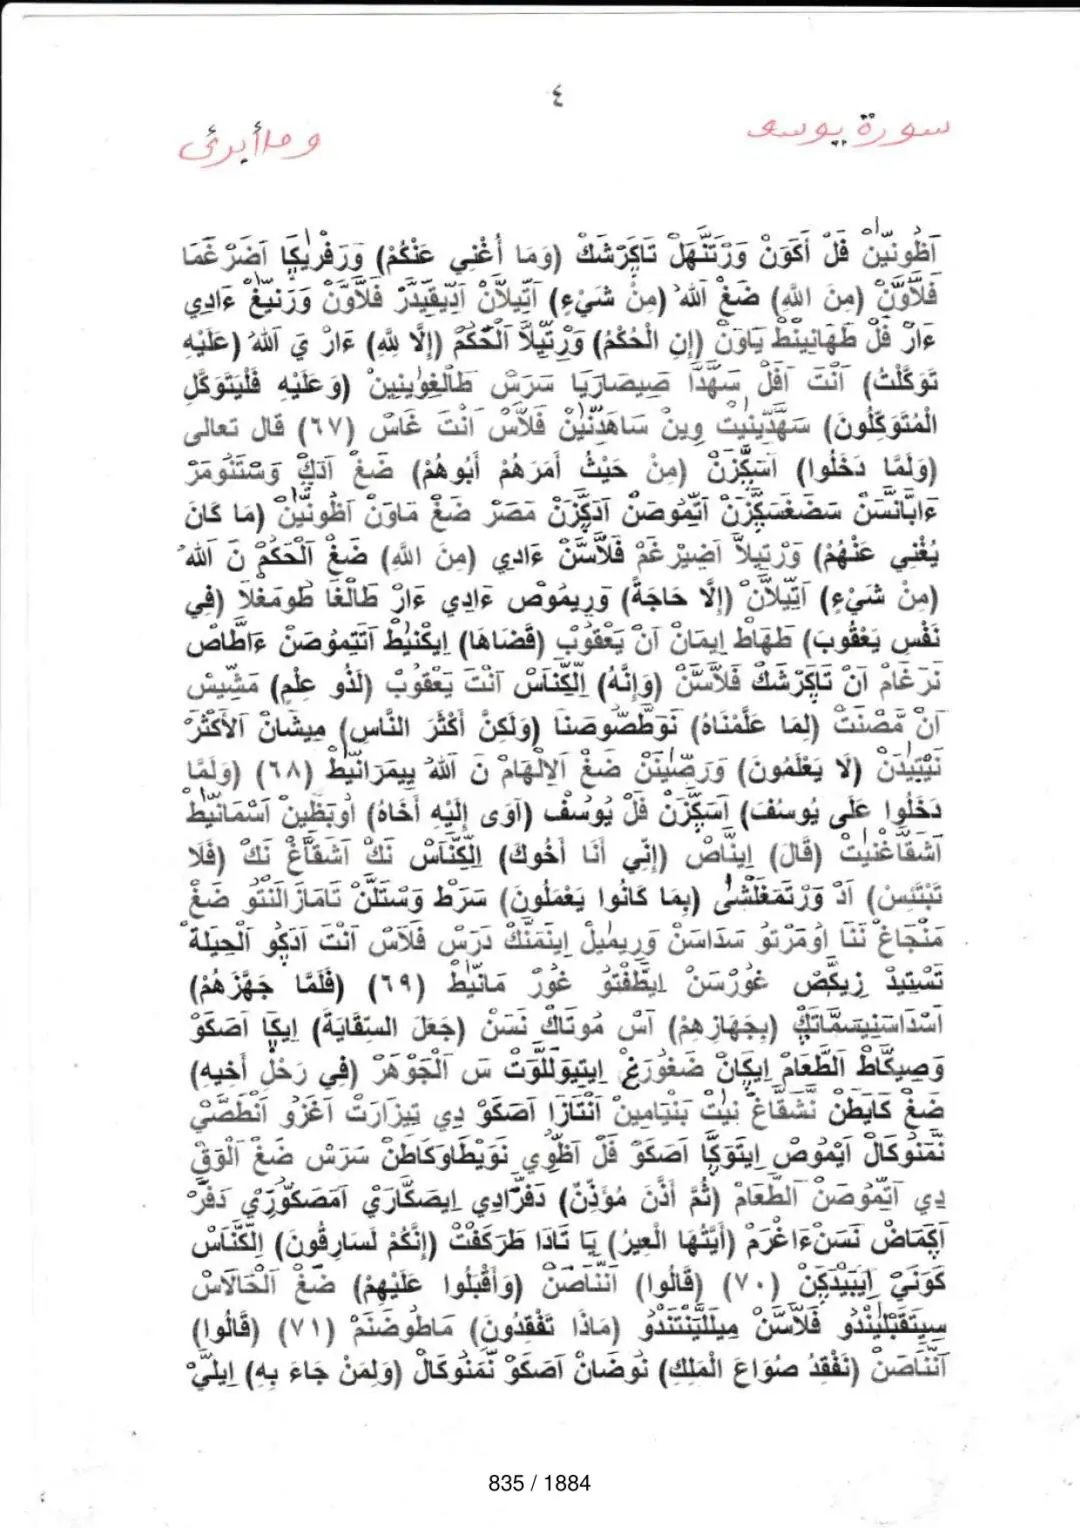 ٤
سورة يوسف
وما أبرئ
اَظُونِيّنْ فَلْ أَكَوَنْ وَرْتَنَّهَلْ تَاكَرْشَكْ (وَمَا أُغْنِي عَنْكُمْ) وَرَفْرِيكِا اَضَرْغَمَا
فَلَّاوَنْ (مِنَ اللَّهِ) ضَغْ اَللهُ (مِنْ شَيْءٍ) اَتِّيلَانْ اَدِيقِيدَرْ فَلَّاوَنْ وَرَنِيغْ ءَادِي
ءَارْ فَلْ طَهَانِينَطْ يَاوَنْ (إِنِ الْحُكْمُ) وَرْتِيلَا اَلْحُكُمْ (إِلَّا لِلَّهِ) ءَارْ يَ اَللهُ (عَلَيْهِ
تَوَكَّلْتُ) اَنْتَ اَفَلْ سَهَّدَا صِيصَارِيَا سَرَسْ طَالْغِوِينِينْ (وَعَلَيْهِ فَلْيَتَوَكَّلِ
الْمُتَوَكِّلُونَ) سَهَّدِينِيتْ وِينْ سَاهَدْنِينْ فَلَّاسْ اَنْتَ غَاسْ (٦٧) قال تعالى
(وَلَمَّا دَخَلُوا) اَسَگَّزَنْ (مِنْ حَيْثُ أَمَرَهُمْ أَبُوهُمْ) ضَغْ اَدَگْ وَسْتَنُومَرْ
ءَابَّانَسَّنْ سَضَغَسَگَّزَنْ اَتِّمُوصَنْ اَدَگَّزَنْ مَصْرَ ضَغْ مَاوَنْ اَظُونِيّنْ (مَا كَانَ
يُغْنِي عَنْهُمْ) وَرْتِيلَا اَضِيرْغَمْ فَلَّاسَنْ ءَادِي (مِنَ اللَّهِ) ضَغْ اَلْحَكُمْ نَ اَللهُ
(مِنْ شَيْءٍ) اَتِّيلَانْ (إِلَّا حَاجَةً) وَرِيمُوصْ ءَادِي ءَارْ طَالْغَا طَومَغْلَا (فِي
نَفْسِ يَعْقُوبَ) طَهَاطْ اِيمَانْ اَنْ يَعْقُوبْ (قَضَاهَا) اِيكْنِيطْ اَتَتِمُوصَنْ ءَاطَّاصْ
نَرْغَامْ اَنْ تَاكَرْشَكْ فَلَّاسَنْ (وَإِنَّهُ) اِلْكَنَاسْ اَنْتَ يَعْقُوبْ (لَذُو عِلْمٍ) مَشِّيسْ
اَنْ مَّصْنَتْ (لِمَا عَلَّمْنَاهُ) نَوَطَّصُوصَنَا (وَلَكِنَّ أَكْثَرَ النَّاسِ) مِيشَانْ اَلْأَكْثَرْ
نَيْتِيدَنْ (لَا يَعْلَمُونَ) وَرَصِّينَنْ ضَغْ اَلِالْهَامْ نَ اَللهُ يِيمَرَانِيطْ (٦٨) (وَلَمَّا
دَخَلُوا عَلَى يُوسُفَ) اَسَگَّزَنْ فَلْ يُوسُفْ (آوَى إِلَيْهِ أَخَاهُ) اُوبَظِينْ اَسْمَانِيطْ
اَشَقَاغْنِيتْ (قَالَ) اِينَّاصْ (إِنِّي أَنَا أَخُوكَ) اِلْكَنَاسْ نَكْ اَشَقَاغْ نَكْ (فَلَا
تَبْتَئِسْ) اَدْ وَرْتَمَغْلَشَى (بِمَا كَانُوا يَعْمَلُونَ) سَرَطْ وَسْتَلَنْ تَامَازَالَنْتُو ضَغْ
مَنْجَاغْ نَنَا اُومَرْتُو سَدَاسَنْ وَرِيمِيلْ اِينَمَنْكْ دَرَسْ فَلَاسْ اَنْتَ اَدَكُو اَلْحِيلَةْ
تَسْتِيدْ زِيكَّصْ غُورْسَنْ اِيطَّفْتُو غُورْ مَانِيطْ (٦٩) (فَلَمَّا جَهَّزَهُمْ)
اَسْدَاسَنِيسَمَّاتَكْ (بِجَهَازِهِمْ) اَسْ مُوتَاكْ نَسَنْ (جَعَلَ السِّقَايَةَ) اِيكَا اَصَكَوْ
وَصِيكَاطْ اَلطَّعَامْ اِيكَانْ ضَغُورَغْ اِيتِيوَلْلَوْتْ سَ اَلْجَوْهَرْ (فِي رَحْلِ أَخِيهِ)
ضَغْ كَايَطَنْ نَّشَقَّاغْ نِيتْ بَنْيَامِينْ اَنْتَازَا اَصَكَوْ دِي تِيزَارَتْ اَغَزُو اَنْطَصِّي
نَّمَنُوكَالْ اَيْمُوصْ اِيتَوَكَّا اَصَكَوْ فَلْ اَظْوِي نَوَيْطَاوَكَاطَنْ سَرَسْ ضَغْ اَلْوَقْ
دِي اَتِّمُوصَنْ اَلطَّعَامْ (ثُمَّ أَذَّنَ مُؤَذِّنٌ) دَفَرَّادِي اِيصَكَارِي اَمَصَكُورَيْ دَفَرْ
اَكِمَاضْ نَسَنْ ءَاغْرَمْ (أَيَّتُهَا الْعِيرُ) يَا تَادَا طَرَكَفْتْ (إِنَّكُمْ لَسَارِقُونَ) اِلْكَنَاسْ
كَوَنَيْ اَيْبَيْدَكَنْ (٧٠) (قَالُوا) اَنَّنَاصَنْ (وَأَقْبَلُوا عَلَيْهِمْ) ضَغْ اَلْحَالَاسْ
سِيتَقَبْلِينْدُو فَلَاسَنْ مِيلَلِّيَنْتَنْدُو (مَاذَا تَفْقِدُونَ) مَاطُوضَنَمْ (٧١) (قَالُوا)
اَنَّنَاصَنْ (نَفْقِدُ صُوَاعَ الْمَلِكِ) نُوضَانْ اَصَكَوْ نَّمَنُوكَالْ (وَلِمَنْ جَاءَ بِهِ) اِيلَيّْ
835 / 1884